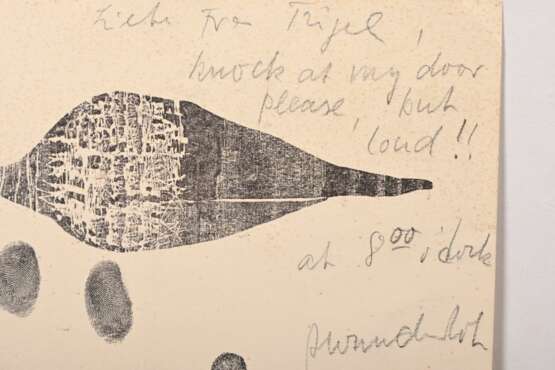 Liebe Frau Trigel,
knock at my door
please, but
loud!!
at 8⁰⁰ o'clock